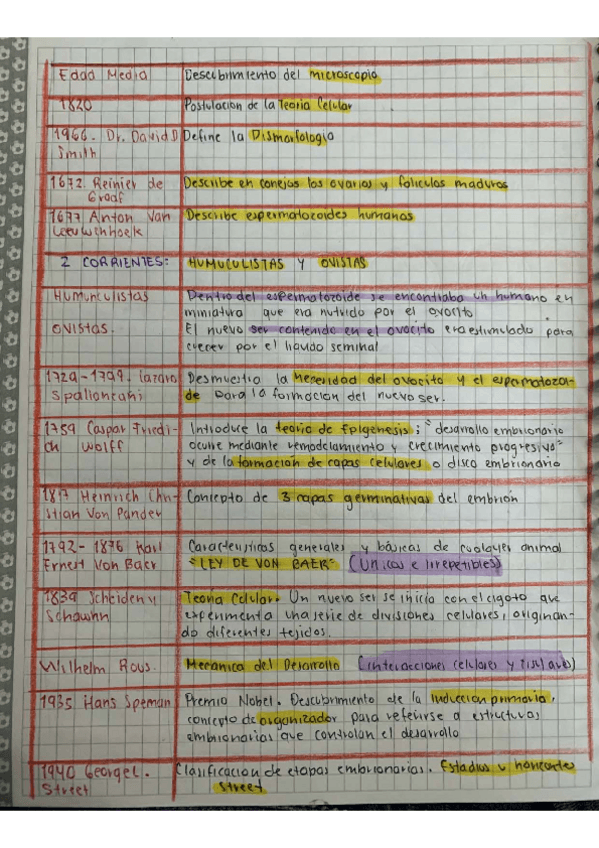 Edad Media Descubrimiento del microscopio
1820 Postulacion de la Teoria Celular
1966. Dr. David D Define la Dismorfologia
Smith
1672. Reinier de Describe en conejos los ovarios y foliculos maduros
Graaf
1677 Anton Van Describe espermatozoides humanos
Leeuwenhoek
2 CORRIENTES: HUMUCULISTAS Y OVISTAS
Humunculistas Dentro del espermatozoide se encontraba un humano en
miniatura que era nutrido por el ovocito
OVISTAS. El nuevo ser contenido en el ovocito era estimulado para
crecer por el liquido seminal
1729-1799. lazaro Desmuestra la necesidad del ovocito y el espermatozoi-
Spallonzani de para la formacion del nuevo ser.
1759 Caspar Friedi- Introduce la teoria de Epigenesis ; "desarrollo embrionario
ich Wolff ocurre mediante remodelamiento y crecimiento progresivo"
y de la formación de capas celulares o disco embrionario
1817 Heinrich Chri- Concepto de 3 capas germinativas del embrión
stian Von Pander
1792-1876 Karl Caracteristicas generales y básicas de cualquier animal
Ernest Von Baer "LEY DE VON BAER" (Unicas e Irrepetibles)
1839 Scheiden y Teoria Celular. Un nuevo ser se inicia con el cigoto que
Schawnn experimenta una serie de divisiones celulares, originan-
do diferentes tejidos.
Wilhelm Rous. Mecanica del Desarrollo (interacciones celulares y tisulares)
1935 Hans Speman Premio Nobel. Descubrimiento de la induccion primaria,
concepto de organizador para referirse a estructuras
embrionarias que controlan el desarrollo
1940 George L. Clasificacion de etapas embrionarias. Estadios u horizontes
Street street